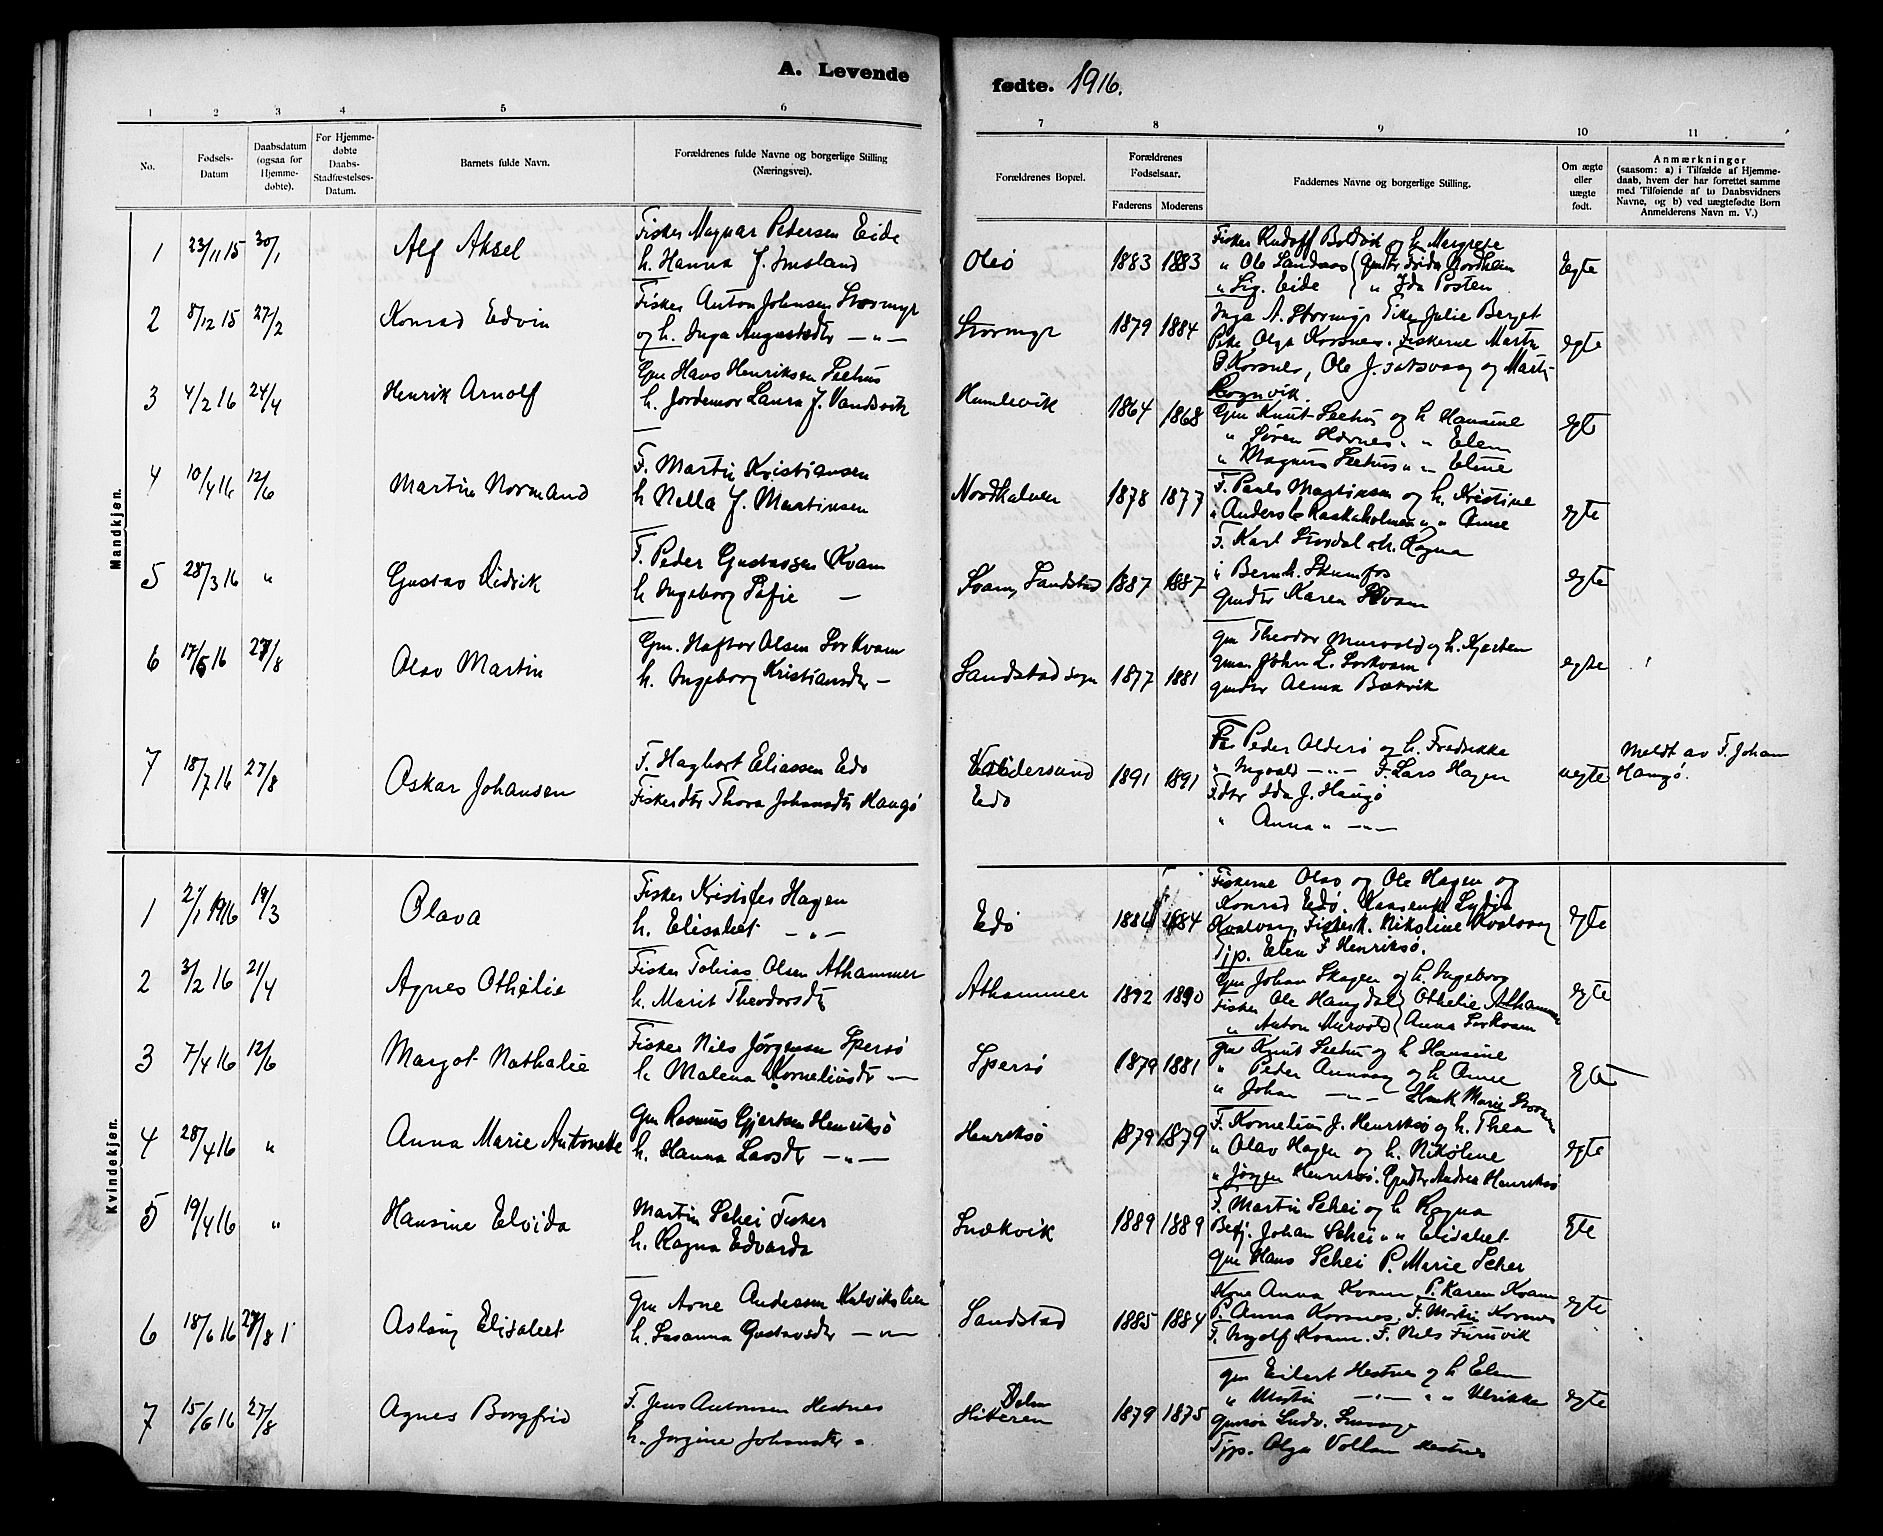 A. Levende fødte. 1916.
1 2 3 4 5 6 7 8 9 10 11
No.
Fødsels-
Datum
Daabsdatum
(ogsaa for
Hjemme-
døbte).
For Hjemme-
døbte
Daabs-
Stadfæstelses-
Datum.
Barnets fulde Navn.
Forældrenes fulde Navne og borgerlige Stilling
(Næringsvei).
Forældrenes Bopæl.
Forældrenes
Fødselsaar.
Faderens Moderens
Faddernes Navne og borgerlige Stilling.
Om ægte
eller
uægte
født.
Anmærkninger
(saasom: a) i Tilfælde af Hjemme-
daab, hvem der har forrettet samme
med Tilføiende af to Daabsvidners
Navne, og b) ved uægtefødte Børn
Anmelderens Navn m. V.)
Mandkjøn.
1 23/11 15 30/1 Alf Aksel
Fisker Magnar Pedersen Eide
h. Hanna J. Imsland
Olsø 1883 1883
Fisker Rudolf Boldvik og h. Margrete
" Ole Sandaas Gmdtr Frida Nordheim
" Sig. Eide " Ida Posten
Egte
2 8/12 15 27/2 Konrad Edvin
Fisker Anton Johnsen Stormyr
og h. Inga Augustsdtr — " —
Stormyr 1879 1884
Inga A. Stormyr Pike Julie Berget
Pike Olga Korsnes. Fiskerne Martin
Korsnes, Ole J. og Martin
Rognvik.
egte
3 4/2 16 24/4 Henrik Arnolf
Gm Hans Henriksen Seehus
h. Jordemor Laura J. Vandvik
Humlevik 1864 1868
Gm Knut Seehus og h Hansine
" Søren Hernes " " Elen
" Magnus Seehus " " Eline
egte
4 10/4 16 12/6 Martin Normand
F. Martin Kristiansen
h Nella J. Martinsen
Nordholmen 1878 1877
F. Paul Martinsen og h. Kristine
" Anders Raskeholmen " " Anne
F. Karl Stordal o h. Ragna
egte
5 28/3 16 " Gustav Didrik
F. Peder Gustavsen Kvam
h Ingeborg Sofie —
Kvam, Sandstad 1887 1887
" Bernh. Skumfos
Gmdtr Karen Kvam
egte
6 17/5 16 27/8 Olav Martin
Gm. Haftor Olsen Sorkvam
h. Ingeborg Kristiansdtr —
Sandstad sogn 1877 1881
gm Theodor Murvold og h. Kjersten
gmsøn John L. Sorkvam
gmdtr Alma Bækvik
egte
7 18/7 16 27/8 Oskar Johansen
F. Hagbart Eliassen Edø
Fiskerdtr Thora Johansdtr Haugø
Edø 1891 1891
F. Peder Alderø og h. Fredrikke
" Ingvald — " — F. Lars Hagen
F.dtr Ida J. Haugø
" Anna " — " —
uegte
Meldt av F. Johan
Haugø.
Kvindekjøn.
1 2/1 1916 19/3 Olava
Fisker Kristofer Hagen
h. Elisabet — " —
Edø 1886 1884
Fiskerne Olav og Ole Hagen og
Konrad Edø. Lydia
Kvalvaag, Fiskerk. Nikoline Kvalvaag
Tjp. Elen F Henriksø.
egte
2 3/2 16 21/4 Agnes Othelie
Fisker Tobias Olsen Athammer
h. Marit Theodorsdtr
Athammer 1892 1890
Gm Johan Skagen og h. Ingeborg
Fisker Ole Haugdal Othelie Athammer
" Anton Murvold Anna Sorkvam
egte
3 7/4 16 12/6 Margot Nathalie
Fisker Nils Jørgensen Spersø
h Malena Korneliusdtr —
Spersø 1879 1881
gm Knut Seehus og h Hansine
" Peder Aunvaag og h Anne
" Johan — " — Marie
Egte
4 28/4 16 " Anna Marie Antonette
gm Rasmus Gjertsen Henriksø
h. Hanna Larsdtr — " —
Henriksø 1879 1879
F. Kornelius J. Henriksø og h. Thea
" Olav Hagen og h. Nikoline
" Jørgen Henriksø. Gmdtr Andrea Henriksø
egte
5 19/4 16 " Hansine Elvida
Martin Schei Fisker
h. Ragna Edvarda
Snekvik 1889 1889
F. Martin Schei og h Ragna
Johan Schei " " Elisabet
gm Hans Schei P. Marie Schei
6 18/6 16 27/8 Aslaug Elisabeet
gm Arne Andersen Kalvikslien
h. Susanna Gustavsdtr — " —
Sandstad 1885 1884
Kone Anna Kvam, P. Karen Kvam
P. Anna Korsnes, F. Martin Korsnes
F. Ingolf Kvam. F. Nils Furuvik
egte
7 15/6 16 27/8 Agnes Borgfrid
F. Jens Antonsen Hestnes
h. Jorgine Johansdtr "
Hitteren 1879 1875
gm Eilert Hestnes og h Elen
" Martin — " — " " Ulrikke
gmsøn Ludv.
Tjp. Olga Vollan Hestnes
egte